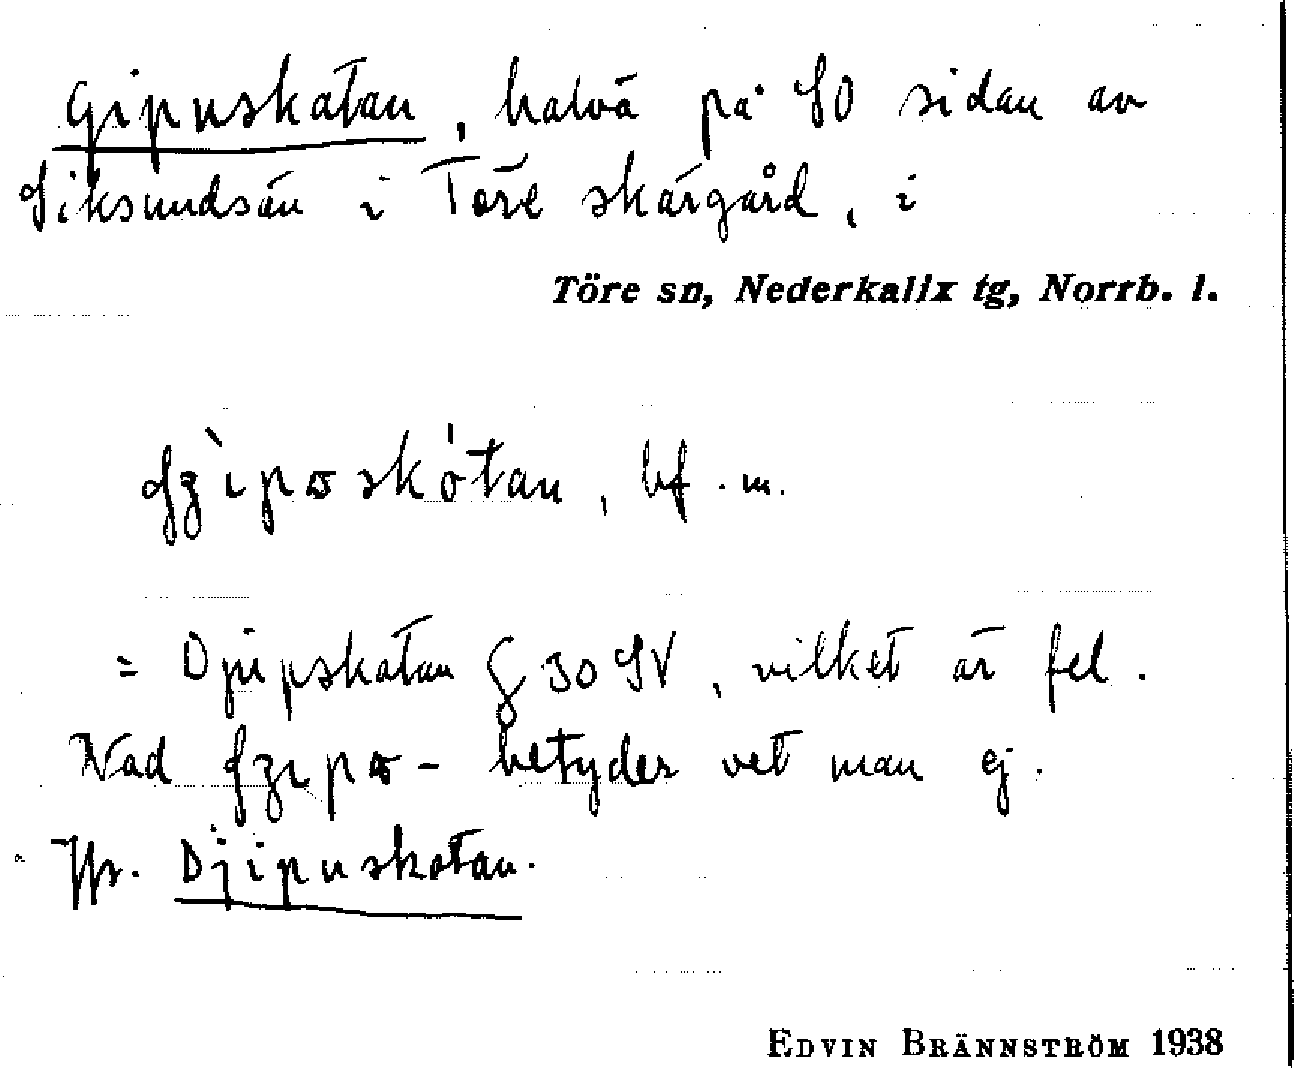 Gipuskatan, halvö på SO sidan av
Siksundsön i Töre skärgård, i
Töre sn, Nederkalix tg, Norrb. l.
bf. m.
= Djupskatan G 30 SV, vilket är fel.
Vad betyder vet man ej.
Djipuskatan.
EDVIN BRÄNNSTRÖM 1938